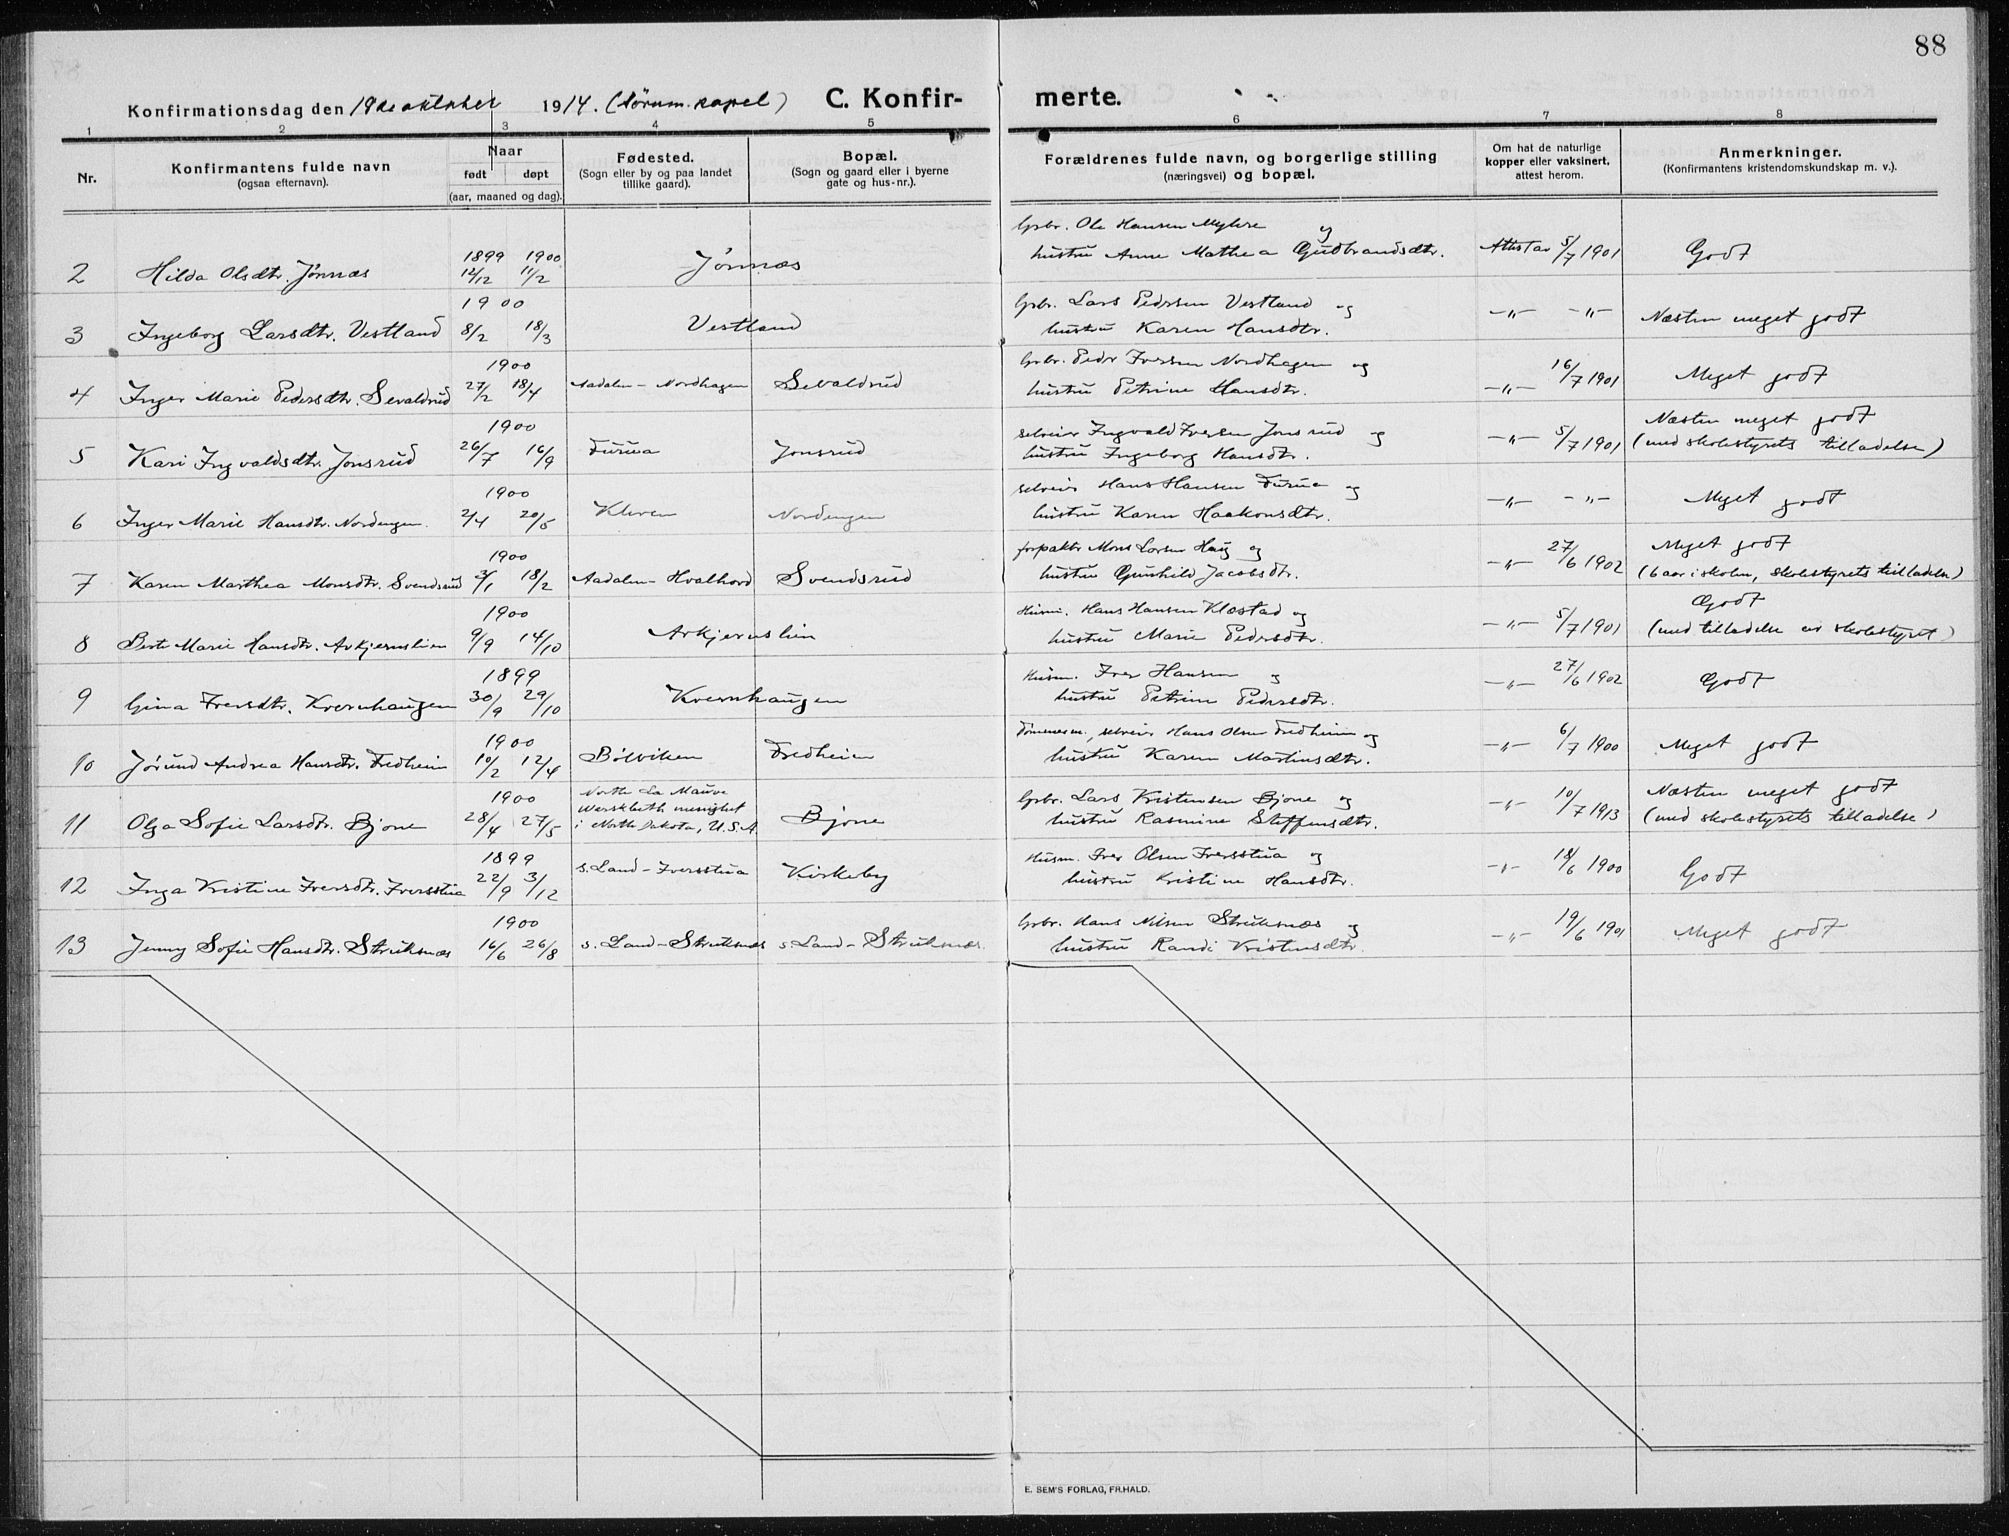 88
Konfirmationsdag den 19de oktober 1914. (Sørum kapel) C. Konfir- merte.
1 2 3 4 5 6 7 8
Nr.
Konfirmantens fulde navn
(ogsaa efternavn).
Naar
født døpt
(aar, maaned og dag).
Fødested.
(Sogn eller by og paa landet
tillike gaard).
Bopæl.
(Sogn og gaard eller i byerne
gate og hus-nr.).
Forældrenes fulde navn, og borgerlige stilling
(næringsvei) og bopæl.
Om hat de naturlige
kopper eller vaksinert,
attest herom.
Anmerkninger.
(Konfirmantens kristendomskundskap m. v.).
Gpbr. Ole Hansen og
1899 1900
2 Hilda Olsdtr. Jønnæs 12/12 11/2 Jønnæs hustru Anne Mathea Gudbrandsdtr. Attest av 5/7 1901 Godt
1900 Gpbr. Lars Pedersen Vestland og
3 Ingeborg Larsdtr. Vestland 8/2 18/3 Vestland hustru Karen Hansdtr. -"- -"- Næsten meget godt
1900 Gpbr. Peder Iversen Nordhagen og
4 Inger Marie Pedersdtr. Sevaldrud 27/2 18/4 Aadalen - Nordhagen Sevaldrud hustru Petrine Hansdtr. -"- 16/7 1901 Meget godt
1900 selveier Ingvald Iversen Jonsrud og Næsten meget godt
5 Kari Ingvaldsdtr. Jonsrud 26/7 16/9 Furua Jonsrud hustru Ingeborg Hansdtr. -"- 5/7 1901 (med skolestyrets tilladelse)
1900 selveier Hans Hansen Furua og
6 Inger Marie Hansdtr. Nordengen. 2/4 20/5 Kleven Nordengen hustru Karen Haakonsdtr. -"- -"- Meget godt
1900 forpakter Mons Larsen Haug og Meget godt
7 Karen Marthea Monsdtr. Svendsrud 3/1 18/2 Aadalen - Hvalhord Svendsrud hustru Gunhild Jacobsdtr. -"- 27/6 1902 (6 aar i skolen, skolestyrets tilladelse)
1900 Husm. Hans Hansen Klæstad og Godt
8 Berte Marie Hansdtr. Askjernslien 9/9 14/10 Askjernslien hustru Marie Pedersdtr. -"- 5/7 1901 (med tilladelse av skolestyret)
1899 Husm. Iver Hansen og
9 Gina Iversdtr. Kvernhaugen 30/9 29/10 Kvernhaugen hustru Petrine Pedersdtr. -"- 27/6 1902 Godt
1900 Tømmerm., selveier Hans Olsen Fredheim og
10 Jørund Andrea Hansdtr. Fredheim 10/2 12/4 Bølviken Fredheim hustru Karen Martinsdtr. -"- 6/7 1900 Meget godt
1900 North La Mauve menighet Gpbr. Lars Kristensen Bjone og Næsten meget godt
11 Olga Sofie Larsdtr. Bjone 28/4 27/5 i North Dakota, U.S.A. Bjone hustru Rasmine Steffensdtr. -"- 10/7 1913 (med skolestyrets tilladelse)
1899 Husm. Iver Olsen Iversstua og
12 Inga Kristine Iversdtr. Iversstua 22/9 3/12 s. Land - Iversstua Kirkeby hustru Kristine Hansdtr. -"- 18/6 1900 Godt
1900 Gpbr. Hans Nilsen Struksnæs og
13 Jenny Sofie Hansdtr. Struksnæs 16/6 26/8 s. Land - Struksnæs s. Land - Struksnæs. hustru Randi Kristensdtr. -"- 19/6 1901 Meget godt
E. SEM'S FORLAG, FR.HALD.